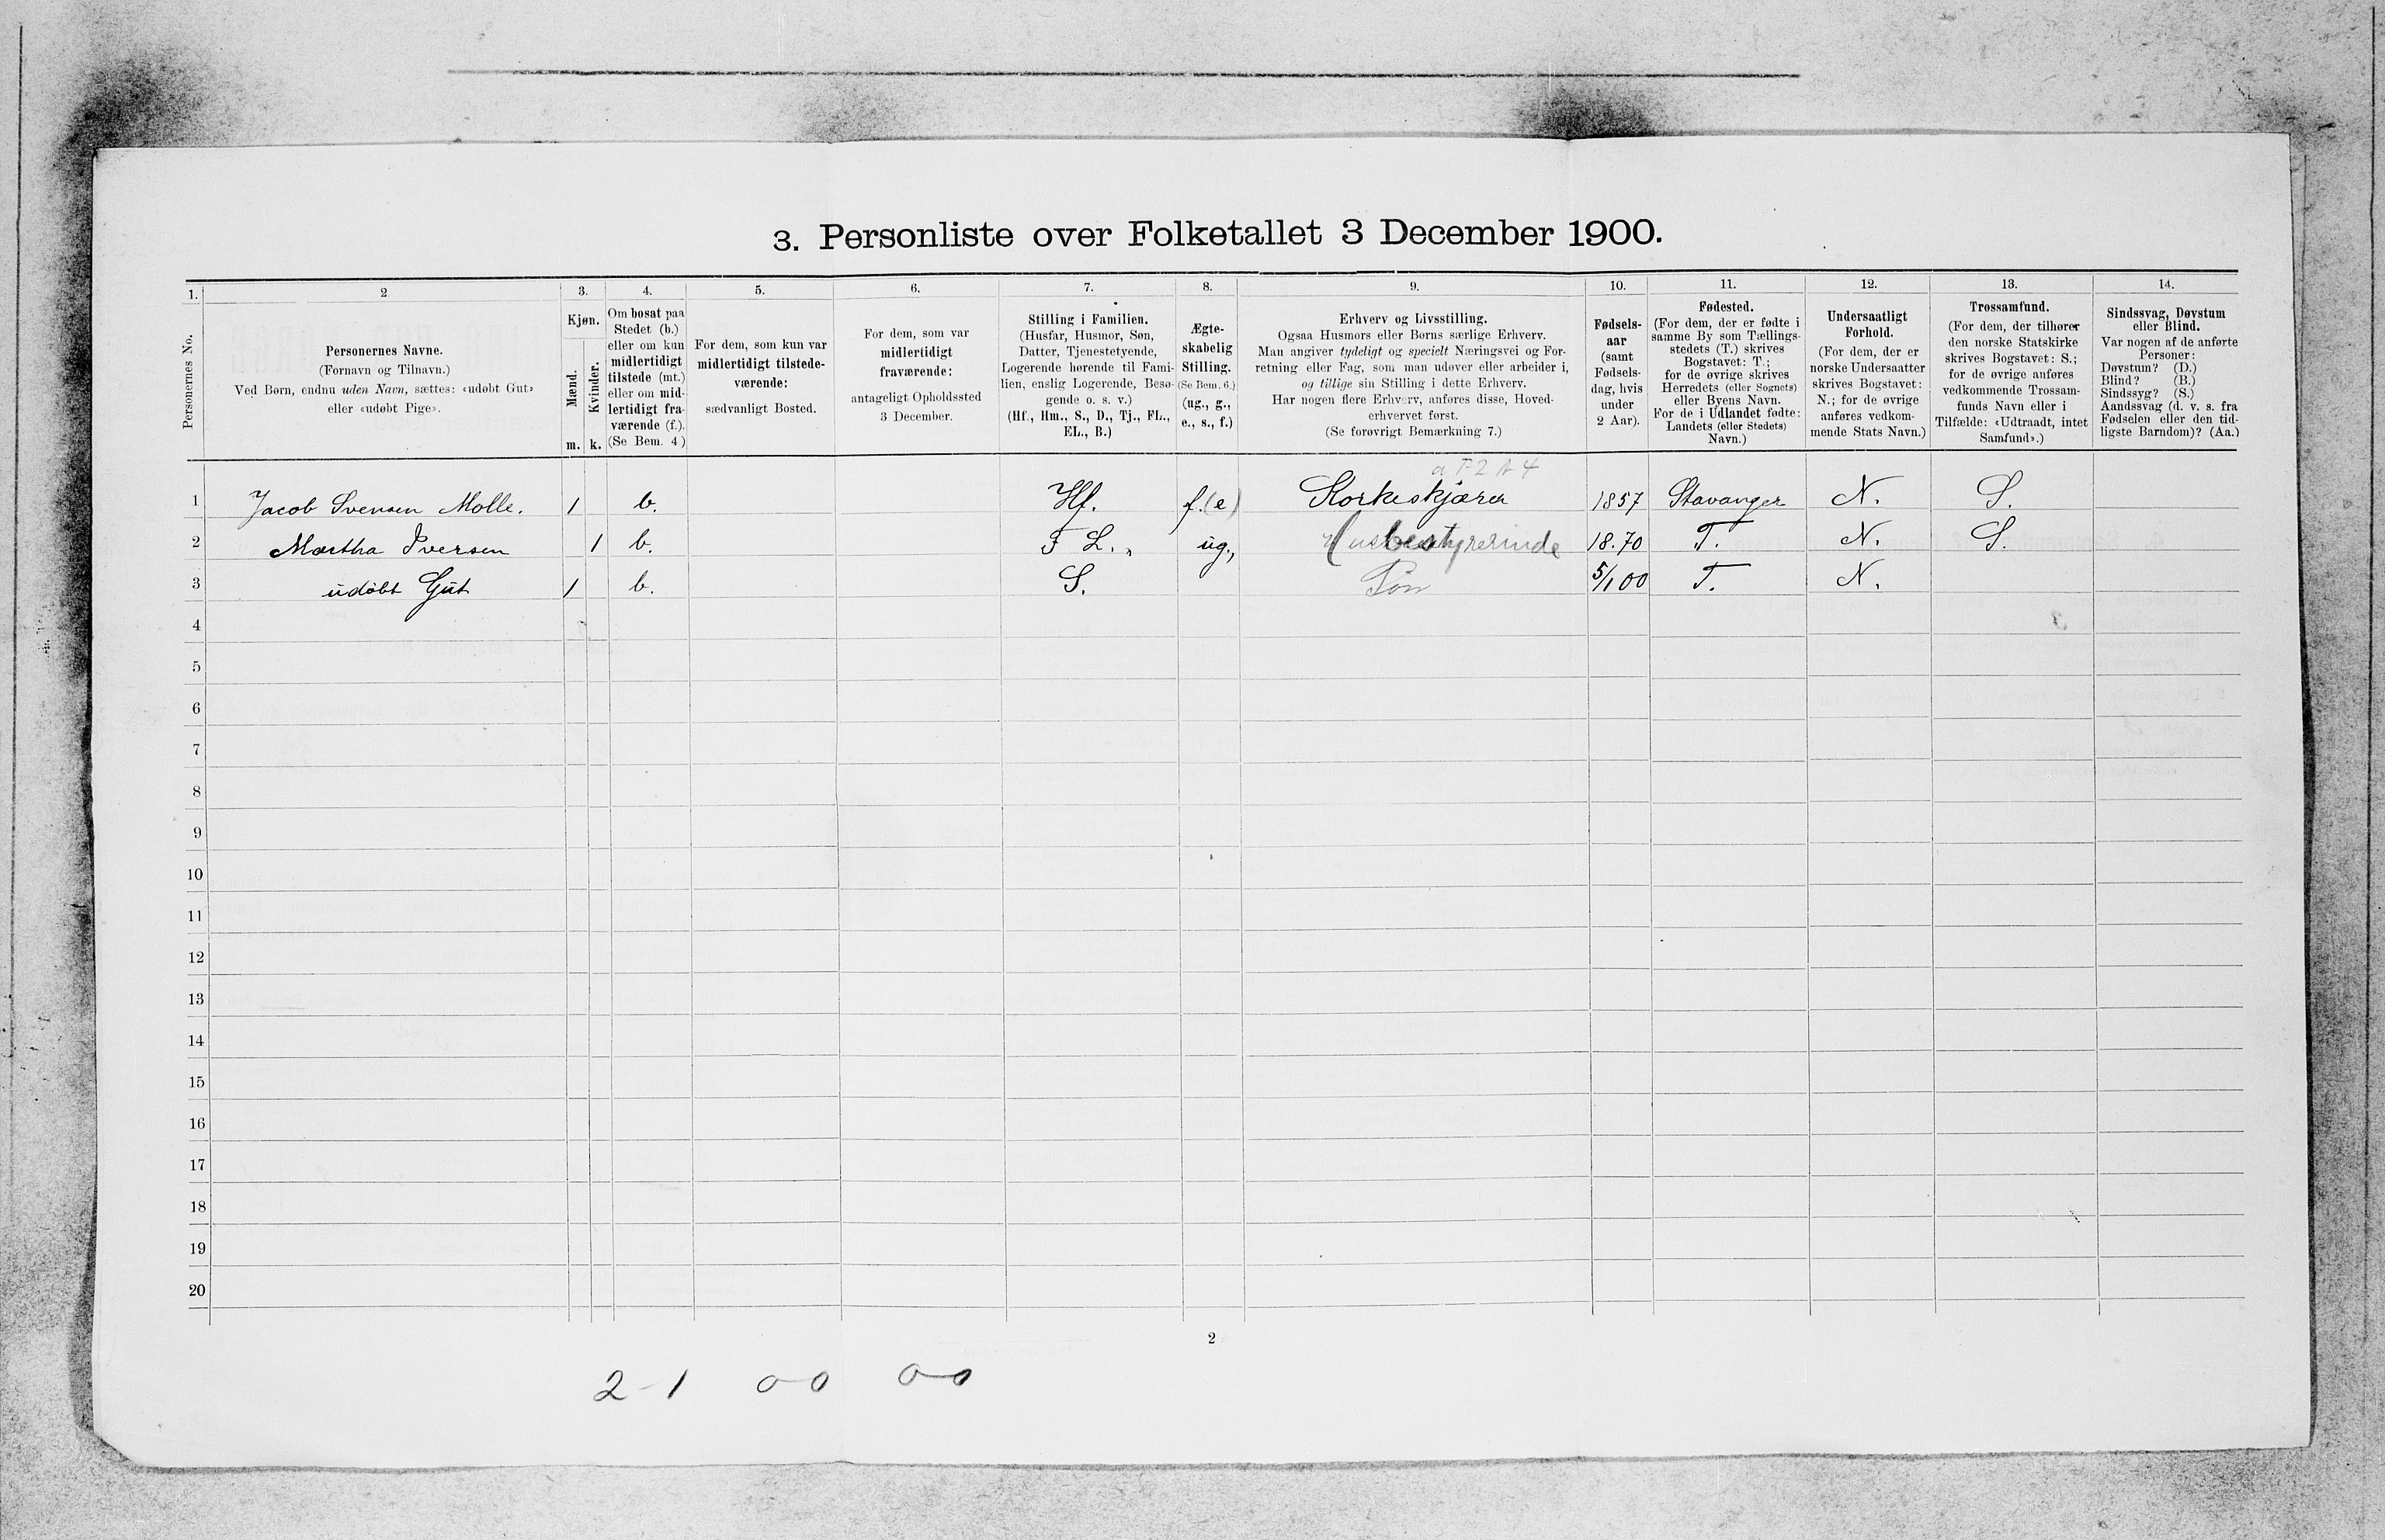 3. Personliste over Folketallet 3 December 1900.
1.
2
3.
4.
5.
6.
7.
8.
9.
10.
11.
12.
13.
14.
Personernes No.
Personernes Navne.
(Fornavn og Tilnavn.)
Ved Børn, endnu uden Navn, sættes: «udøbt Gut»
eller «udøbt Pige».
Kjøn.
Mænd.
Kvinder.
m.
k.
Om bosat paa
Stedet (b.)
eller om kun
midlertidigt
tilstede (mt.)
eller om mid-
lertidigt fra-
værende (f.).
(Se Bem. 4)
For dem, som kun var
midlertidigt tilstede-
værende:
sædvanligt Bosted.
For dem, som var
midlertidigt
fraværende:
antageligt Opholdssted
3 December.
Stilling i Familien.
(Husfar, Husmor, Søn,
Datter, Tjenestetyende,
Logerende hørende til Fami-
lien, enslig Logerende, Besø-
gende o. s. v.)
(Hf., Hm., S., D., Tj., FL.,
EL., B.)
Ægte-
skabelig
Stilling.
(Se Bem. 6.)
(ug., g.,
e., s., f.)
Erhverv og Livsstilling.
Ogsaa Husmors eller Børns særlige Erhverv.
Man angiver tydeligt og specielt Næringsvei og For-
retning eller Fag, som man udøver eller arbeider i,
og tillige sin Stilling i dette Erhverv.
Har nogen flere Erhverv, anføres disse, Hoved-
erhvervet først.
(Se forøvrigt Bemærkning 7.)
Fødsels-
aar
(samt
Fødsels-
dag, hvis
under
2 Aar).
Fødested.
(For dem, der er fødte i
samme By som Tællings-
stedets (T.) skrives
Bogstavet: T.;
for de øvrige skrives
Herredets (eller Sognets)
eller Byens Navn.
For de i Udlandet fødte:
Landets (eller Stedets)
Navn.)
Undersaatligt
Forhold.
(For dem, der er
norske Undersaatter
skrives Bogstavet:
N.; for de øvrige
anføres vedkom-
mende Stats Navn.)
Trossamfund.
(For dem, der tilhører
den norske Statskirke
skrives Bogstavet: S.;
for de øvrige anføres
vedkommende Trossam-
funds Navn eller i
Tilfælde: «Udtraadt, intet
Samfund».)
Sindssvag, Døvstum
eller Blind.
Var nogen af de anførte
Personer:
Døvstum? (D.)
Blind? (B.)
Sindssyg? (S.)
Aandssvag (d. v. s. fra
Fødselen eller den tid-
ligste Barndom)? (Aa.)
1 Jacob Svensen Molle. 1 b. Hf. f.(e) Korkeskjærer 1857 Stavanger N. S.
2 Martha Iversen 1 b. F L. ug., Husbestyrerinde 18.70 T. N. S.
3 udöbt Gut 1 b. S. Søn 5/1 00 T. N.
4
5
6
7
8
9
10
11
12
13
14
15
16
17
18
19
20
2
2-1 0-0 0-0